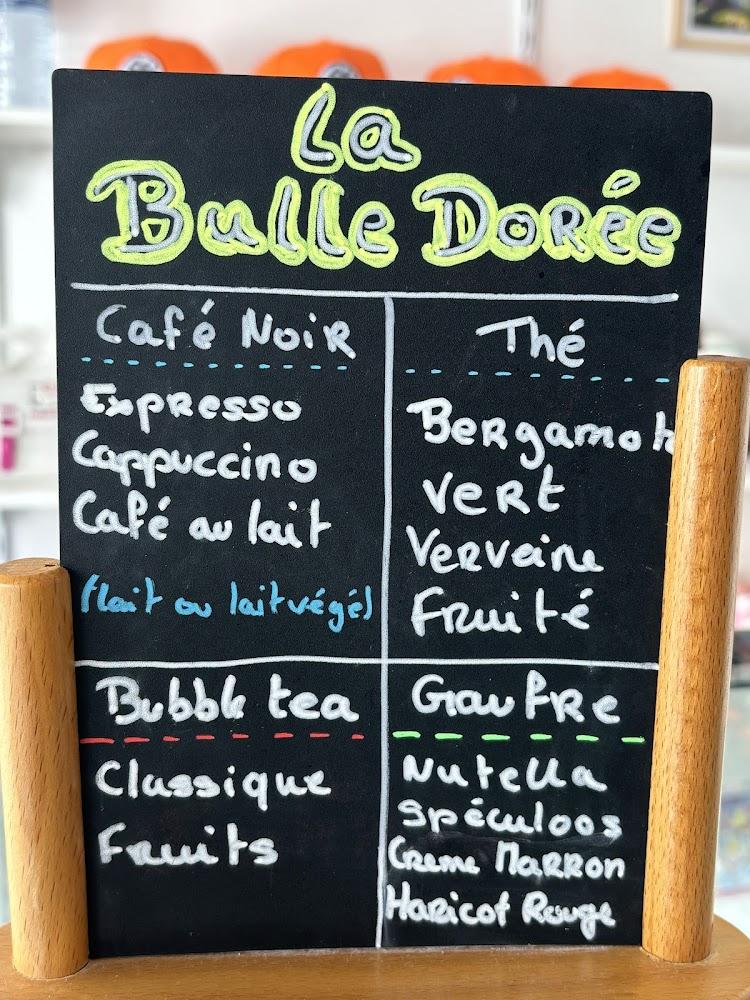 La
Bulle Dorée
Café Noir
Expresso
Cappuccino
Café au lait
(lait ou lait végé)
Thé
Bergamote
Vert
Verveine
Fruité
Bubble tea
Classique
Fruits
Gaufre
Nutella
Spéculoos
Creme Marron
Haricot Rouge